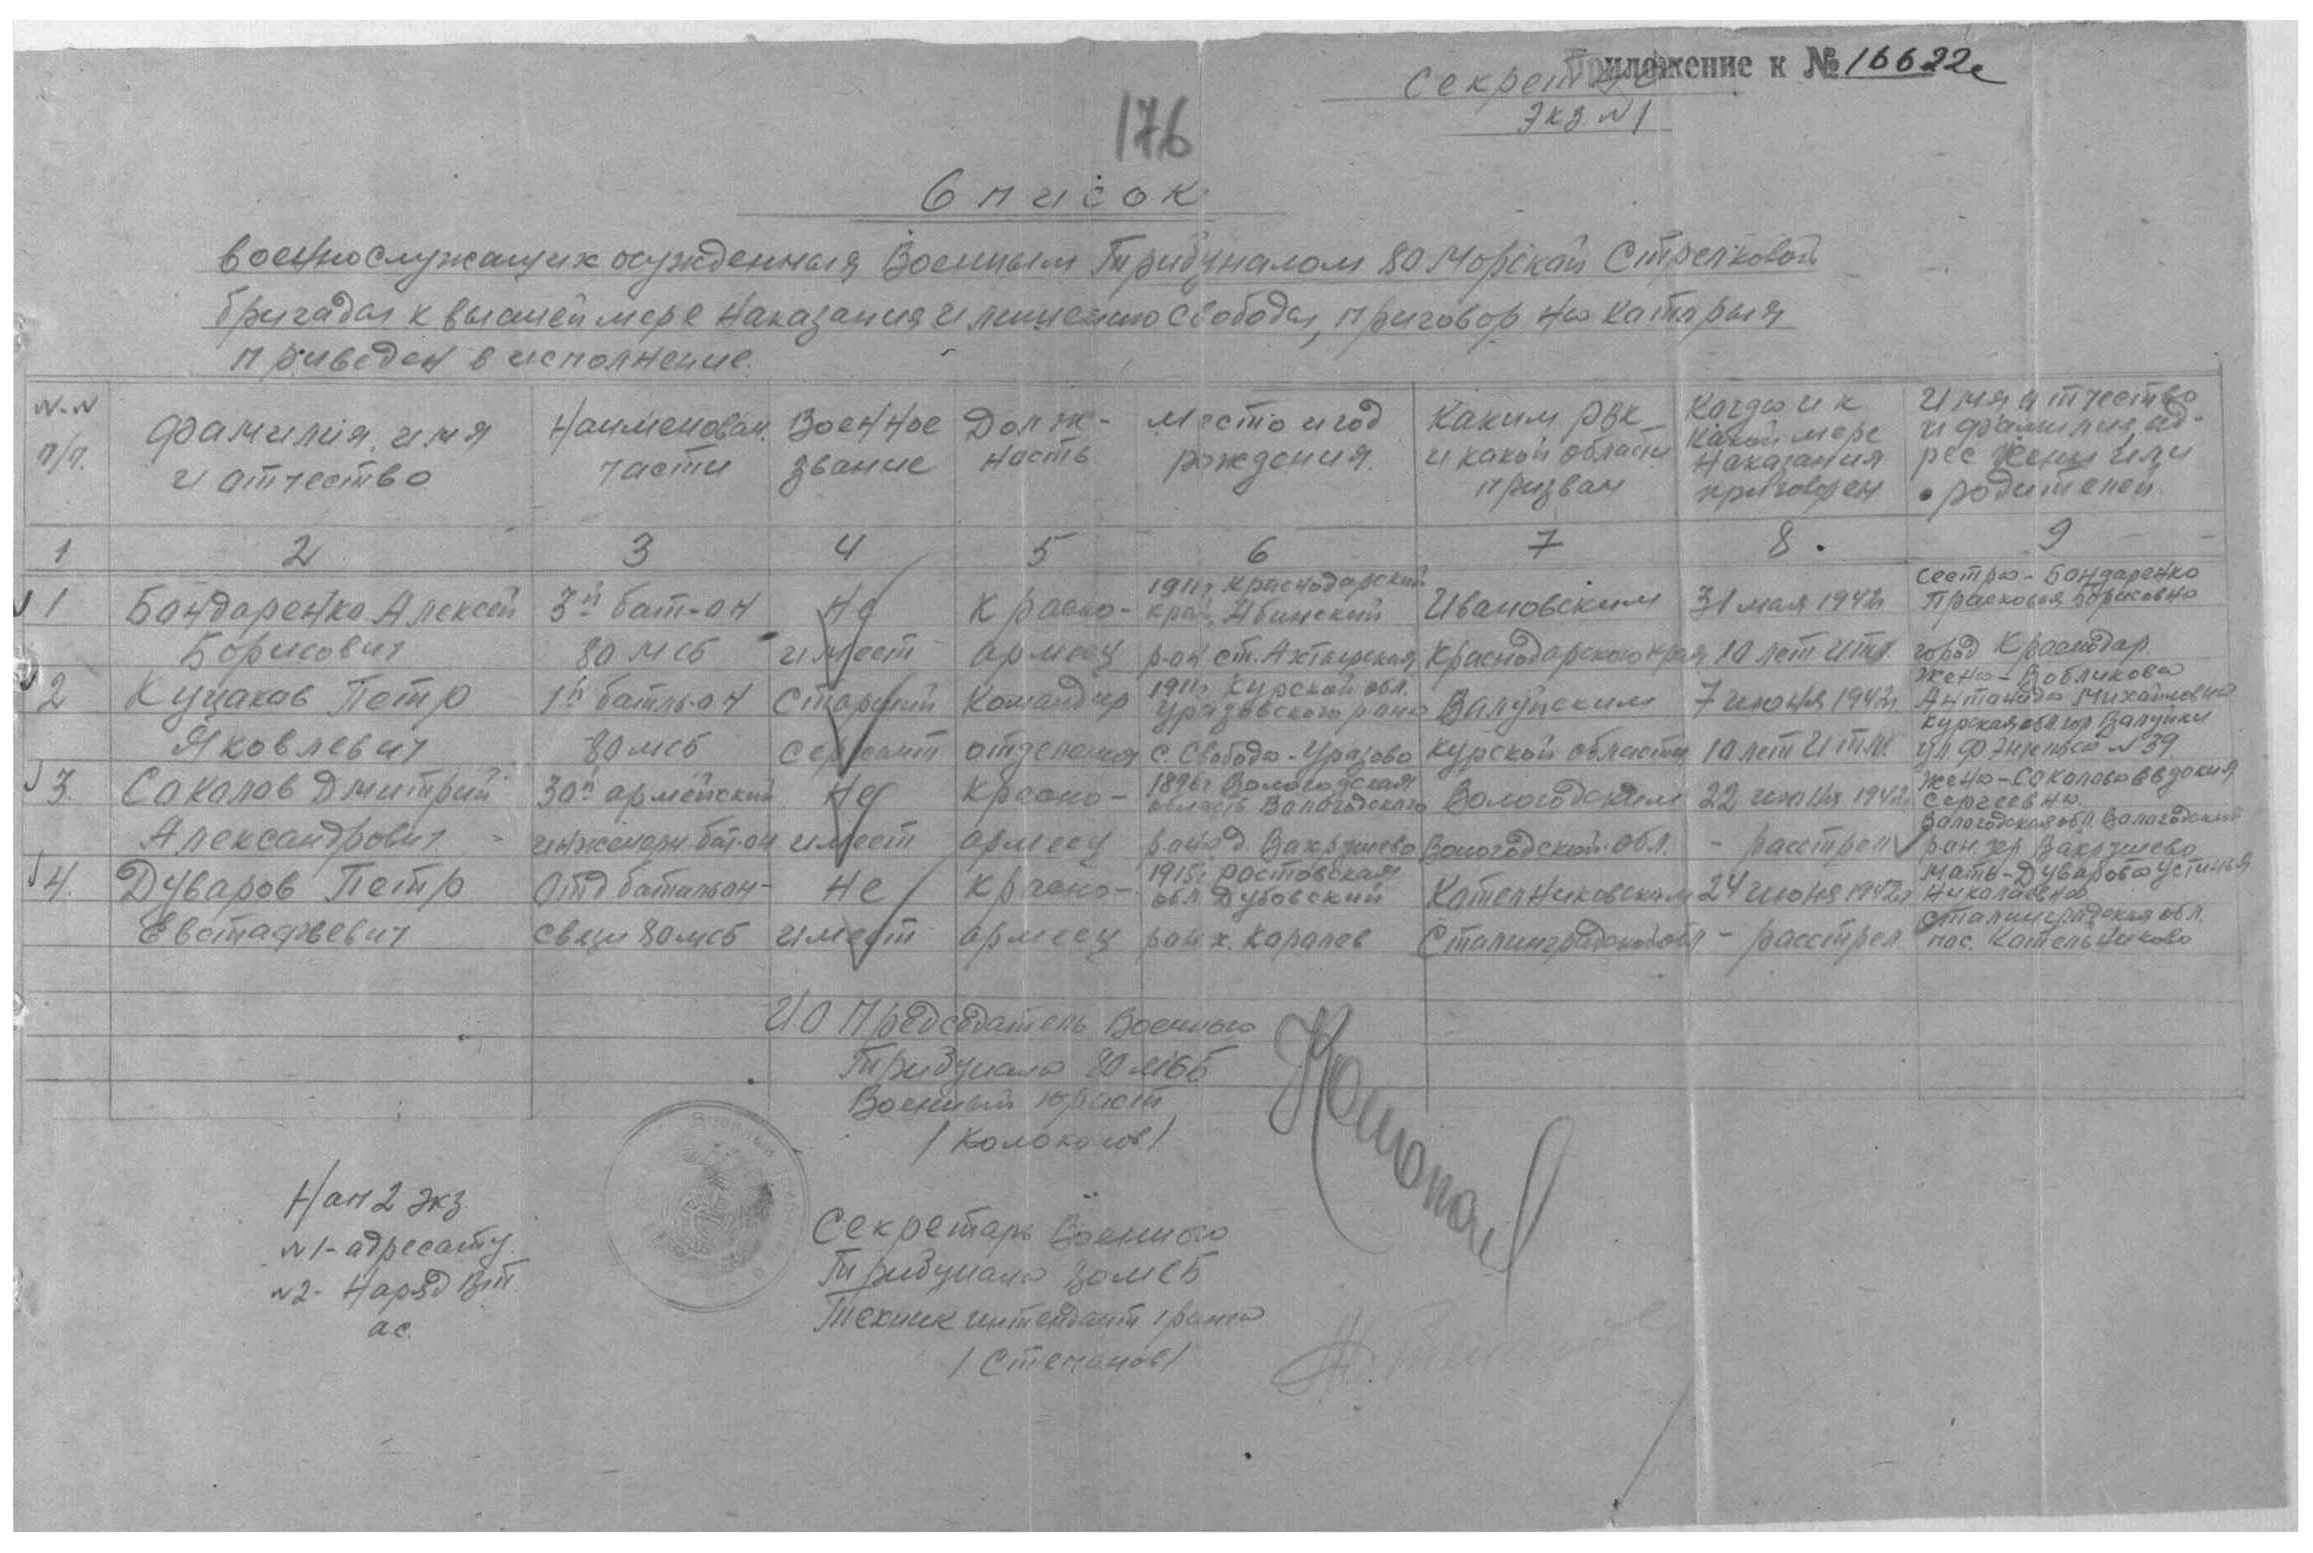 Приложение к № 16622с
Секретно
Экз. N 1
176
Список
военнослужащих осужденныя Военным Трибуналом 80 Морской Стрелковой
бригады к высшей мере наказания и лишению свободы, приговор на каторыя
приведен в исполнение.
N-N п/п.
Фамилия, имя и отчество
Наименован. части
Военное звание
Долж-ность
Место и год рождения.
Каким РВК и какой области призван
Когда и к какой мере наказания приговорен
Имя отчество и фамилия, ад-рес жены или родителей.
1 2 3 4 5 6 7 8. 9
1 Бондаренко Алексей Борисович
3й бат-он 80 мсб
Не имеет
Красно-армеец
1911г Краснодарский край, Абинский р-он ст. Ахтырская
Ивановским Краснодарского края
31 мая 1942г 10 лет итл.
сестра - Бондаренко Прасковья Борисовна город Краснодар.
2 Куцаков Петр Яковлевич
1й батль-он 80 мсб
Старший сержант
Командир отделения
1911г Курской обл. Уразовского рано с. Свобода-Уразово
Валуйским Курской области
7 июня 1942г 10 лет ИТЛ.
жена - Вобликова Антанида Михайловна Курская обл гор. Валуйки ул. Ф Энгельса N 39
3. Сокалов Дмитрий Александрович
30й армейский инженерн. бат-он
Не имеет
Красно-армеец
1896г Вологодская область Вологодского рано д. Вахрушево
Вологодским Вологодской обл.
22 июня 1942г - расстрел
жена - Соколова Евдокия Сергеевна Вологодская обл. Вологодский ран дер Вахрушево
4. Дуваров Петр Евстафьевич
Отд батальон- связи 80 мсб
Не имеет
Красно-армеец
1915г Ростовская обл Дубовский ран х. Каралев
Котелниковским Сталинградской обл
24 июня 1942г - расстрел
мать - Дуварова Устинья Николаевна Сталинградская обл. пос. Котельниково
ИО Председатель Военного
Трибунала 80 МСБ
Военный юрист
/ Колоколов /
Секретарь Военного
Трибунала 80 МСБ
Техник интендант 1 ранга
/ Степанов /
Нап 2 экз
N 1- адресату
N 2- Наряд ВТ
ас.